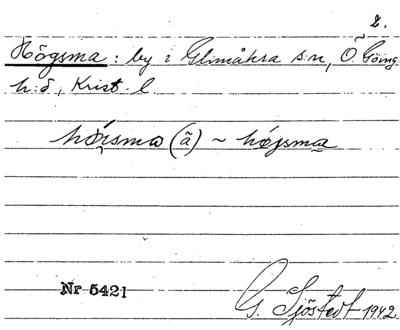 2.
Högsma: by i Glimåkra sn, Ö. Göinge
h:d, Krist. l
hǿi̯sma (ā) ~ hǿjsma
Nr 5421
G. Sjöstedt 1942